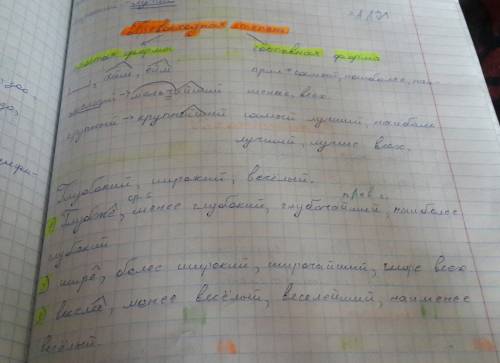 Превосходная степень
простая форма составная форма
ейш, айш прил + самый, наиболее, наи-
менее, всех.
крупный → крупнейший самый лучший, наиболее
лучший, лучше всех.
Глубокий, широкий, весёлый.
ср. с. пр. в. с.
менее глубокий, глубочайший, наиболее
глубокий
шире, более широкий, широчайший, шире всех
менее весёлый, веселейший, наименее
весёлый.